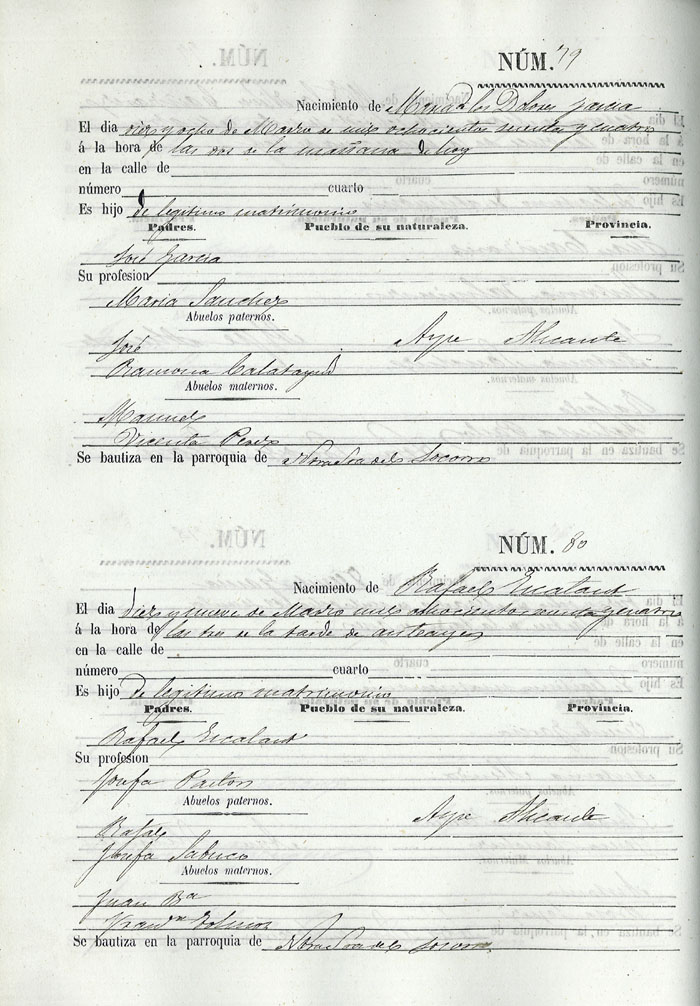 NÚM. 79
Nacimiento de Maria de los Dolores Garcia
El dia diez y ocho de Marzo de mil ochocientos setenta y cuatro
á la hora de las dos de la mañana de hoy
en la calle de
número cuarto
Es hijo de legitimo matrimonio
Padres. Pueblo de su naturaleza. Provincia.
José Garcia
Su profesion
Maria Sanchez
Abuelos paternos.
José Aspe Alicante
Ramona Calatayud
Abuelos maternos.
Manuel
Vicenta Perez
Se bautiza en la parroquia de Ntra Sra del Socorro
NÚM. 80
Nacimiento de Rafael Escalant
El dia diez y nueve de Marzo mil ochocientos setenta y cuatro
á la hora de las tres de la tarde de antes ayer
en la calle de
número cuarto
Es hijo de legitimo matrimonio
Padres. Pueblo de su naturaleza. Provincia.
Rafael Escalant
Su profesion
Josefa Pastor
Abuelos paternos.
Rafael Aspe Alicante
Josefa Sabuco
Abuelos maternos.
Juan Bta
Se bautiza en la parroquia de Ntra Sra del Socorro